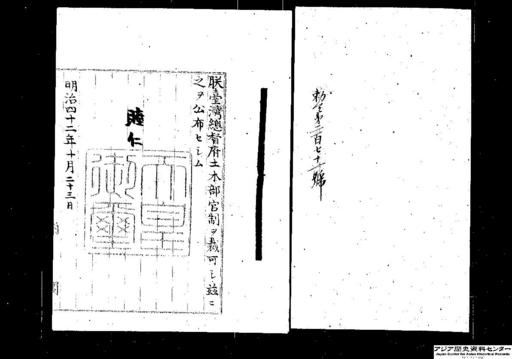 勅令第二百七十一號
朕臺灣總督府土木部官制ヲ裁可シ茲ニ
之ヲ公布セシム
睦仁
天皇御璽
明治四十二年十月二十三日
内閣
アジア歴史資料センター
Japan Center for Asian Historical Records